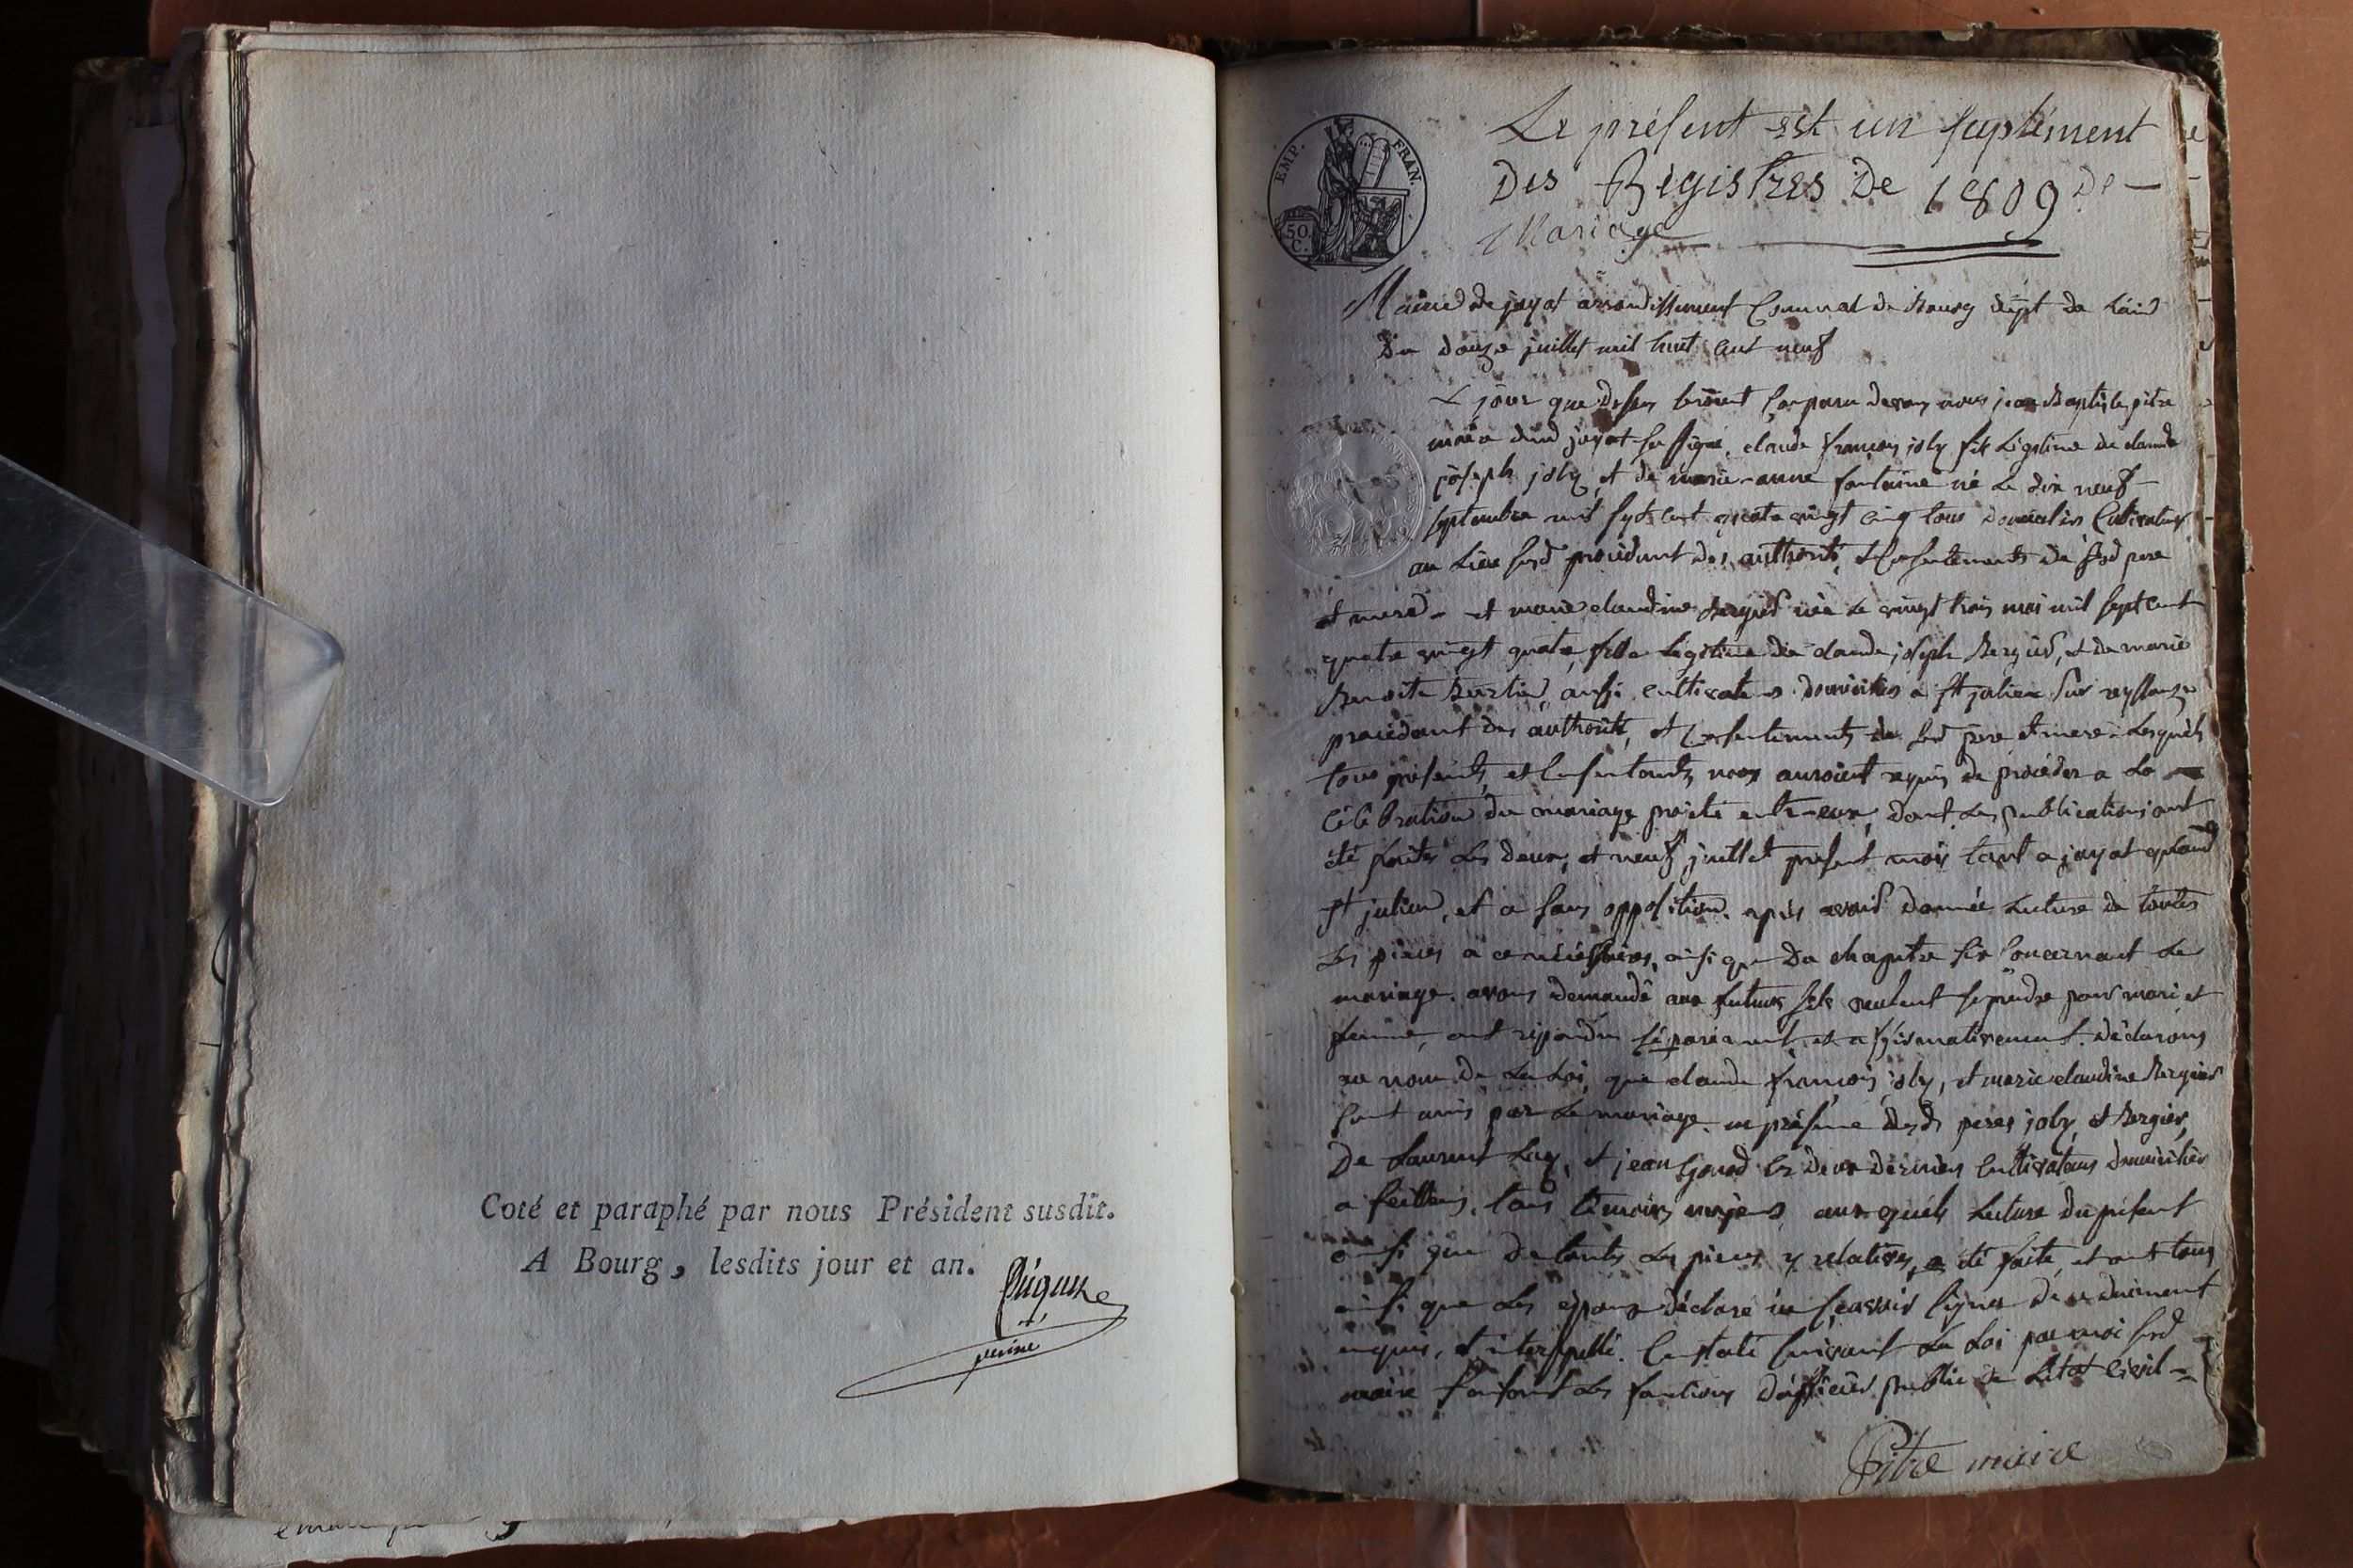 Coté et paraphé par nous Président susdit.
A Bourg, lesdits jour et an.
EMP. FRAN.
50 C.
Le présent est un suplément
Des Régistres De 1809 De
Mariage
Mairie de jayat arrondissement Communal de Bourg dépt de L'ain
Du douze juillet mil huit cent neuf
L jour que dessus seroient comparu devant nous jean Baptiste pitre
maire dud jayat soussigné, claude françois joly fils Légitime de claude
joseph joly, et de marie-anne fontaine né Le dix neuf
septembre mil sept cent quatre vingt cinq tous domiciliés Cultivateurs
au Lieu susd procédant des authorité, et Consentements de sesd pere
et mere - et marie claudine Bergier née Le vingt trois mai mil sept cent
quatre vingt quatre, fille Légitime de claude joseph Bergier, et de marie
Benoite aussi cultivateurs domiciliés a st julien sur reyssouze
procédant des authorité, et Consentements de sesd pere et mere - Lesquels
tous présents, et Consentants, nous auroient requis de procéder a La
célébration du mariage projeté entr-eux, dont Les publications ont
été faites Les deux, et neuf juillet présent mois tant a jayat qu'aud
st julien, et a sans opposition. après avoir donnée Lecture de toutes
Les pieces a ce nécéssaires, ainsi que Du chapitre six Concernant Le
mariage. avons Demandé aux futurs s'ils veulent se prendre pour mari et
femme, ont répondu séparément et affirmativement. Déclarons
au nom De La Loi, que claude françois joly, et marie claudine Bergier
sont unis par Le mariage. en présence desds peres joly, et Bergier,
De Laurent et jean Les deux derniers Cultivateurs domiciliés
a tous témoins majeurs, aux quels Lecture du présent
ainsi que de toutes Les pieces y relatives, a été faite, et ont tous
ainsi que Les époux déclaré ne sçavoir signer de ce duement
enquis, et interpellé. Constaté suivant La Loi par moi susd
maire faisant Les fonctions d'officier public de L'etat Civil -
Pitre maire